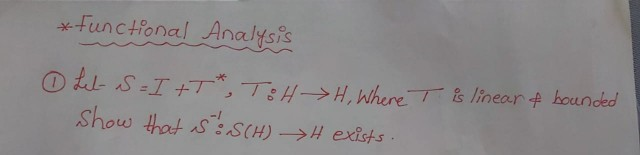 * Functional Analysis
① Let S = I + T*, T: H → H, Where T is linear & bounded
Show that S⁻¹: S(H) → H exists.